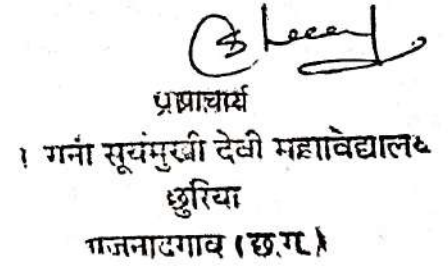 प्राचार्य
रानी सूर्यमुखी देवी महाविद्यालय
छुरिया
राजनांदगांव (छ.ग.)